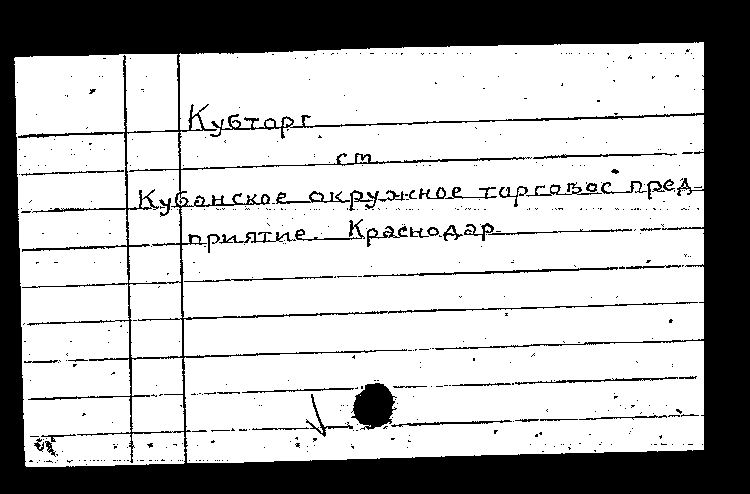 Кубторг
ст
Кубанское окружное торговое пред
приятие. Краснодар